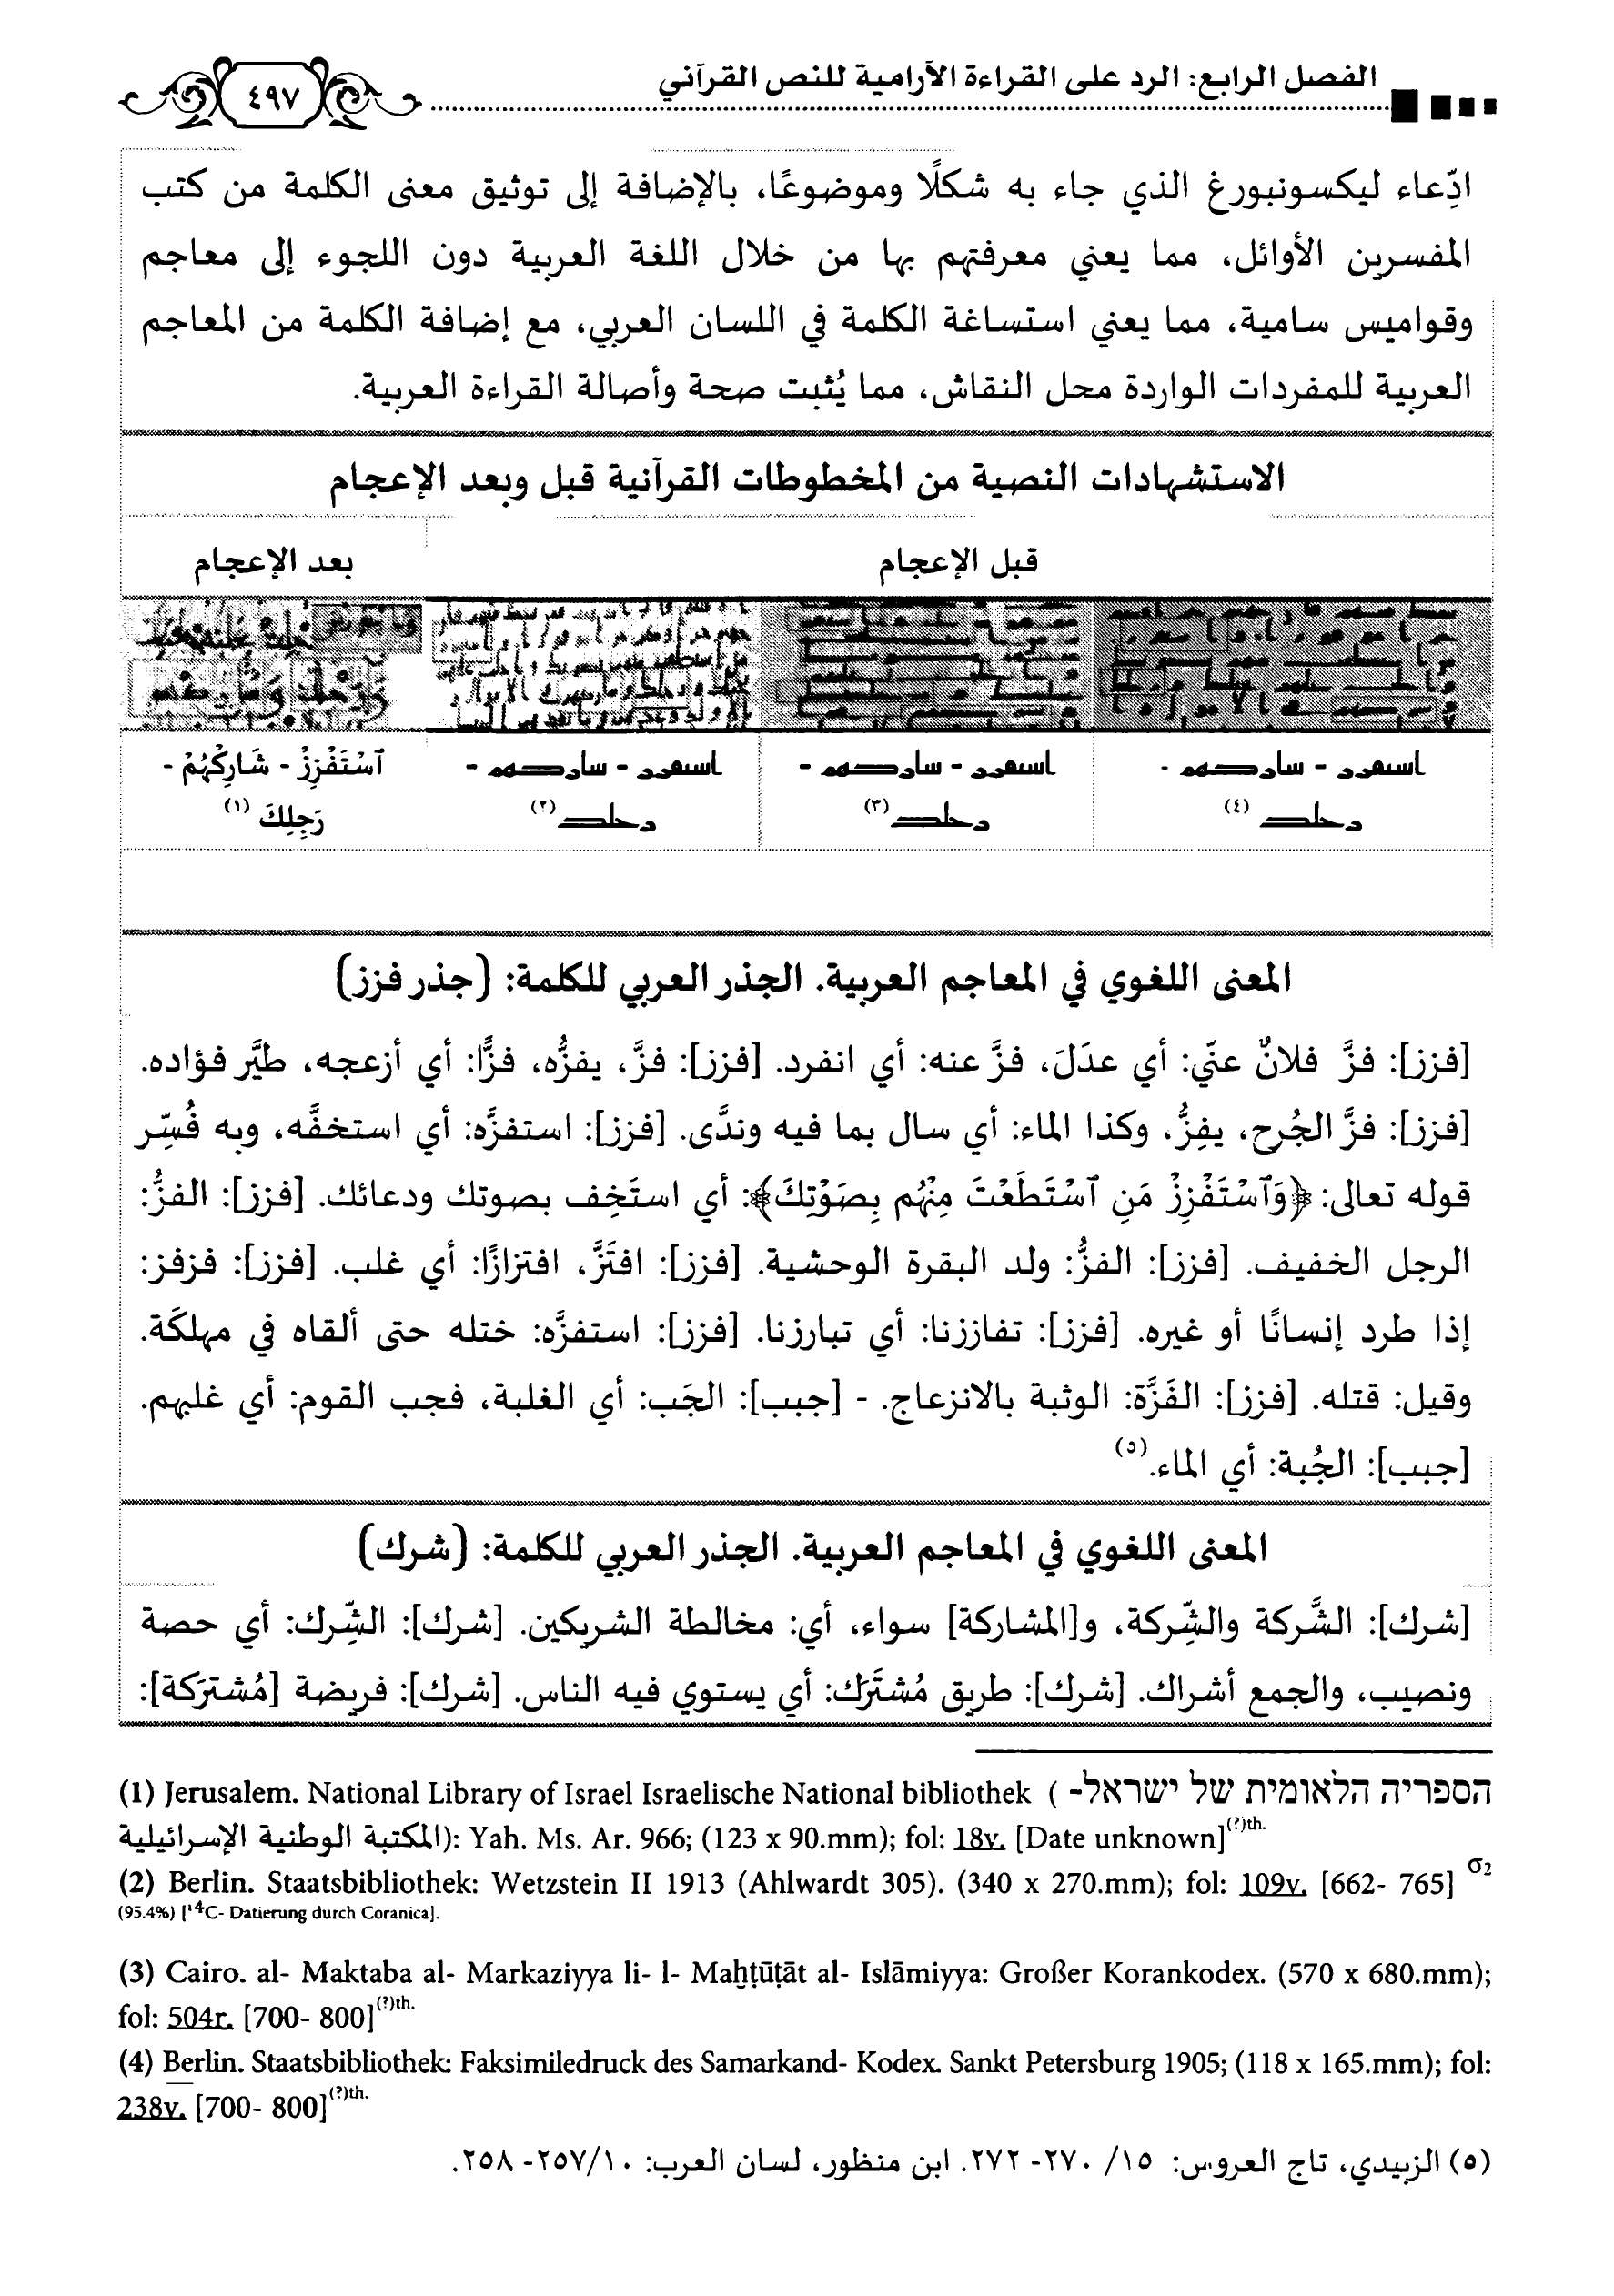 الفصل الرابع: الرد على القراءة الآرامية للنص القرآني
٤٩٧
ادِّعاء ليكسونبورغ الذي جاء به شكلًا وموضوعًا، بالإضافة إلى توثيق معنى الكلمة من كتب
المفسرين الأوائل، مما يعني معرفتهم بها من خلال اللغة العربية دون اللجوء إلى معاجم
وقواميس سامية، مما يعني استساغة الكلمة في اللسان العربي، مع إضافة الكلمة من المعاجم
العربية للمفردات الواردة محل النقاش، مما يُثبت صحة وأصالة القراءة العربية.
الاستشهادات النصية من المخطوطات القرآنية قبل وبعد الإعجام
قبل الإعجام
بعد الإعجام
ٱسْتَفْزِزْ - شَارِكْهُمْ -
رَجِلِكَ (١)
(٢)
(٣)
(٤)
المعنى اللغوي في المعاجم العربية. الجذر العربي للكلمة: (جذر فزز)
[فزز]: فزَّ فلانٌ عنّي: أي عدَلَ، فزَّ عنه: أي انفرد. [فزز]: فزَّ، يفزُّه، فزًّا: أي أزعجه، طيَّر فؤاده.
[فزز]: فزَّ الجُرح، يفِزُّ، وكذا الماء: أي سال بما فيه وندَّى. [فزز]: استفزَّه: أي استخفَّه، وبه فُسِّر
قوله تعالى: ﴿وَٱسْتَفْزِزْ مَنِ ٱسْتَطَعْتَ مِنْهُم بِصَوْتِكَ﴾: أي استَخِف بصوتك ودعائك. [فزز]: الفزُّ:
الرجل الخفيف. [فزز]: الفزُّ: ولد البقرة الوحشية. [فزز]: افتَزَّ، افتزازًا: أي غلب. [فزز]: فزفز:
إذا طرد إنسانًا أو غيره. [فزز]: تفاززنا: أي تبارزنا. [فزز]: استفزَّه: ختله حتى ألقاه في مهلكَة.
وقيل: قتله. [فزز]: الفَزَّة: الوثبة بالانزعاج. - [جبب]: الجَب: أي الغلبة، فجب القوم: أي غلبهم.
[جبب]: الجُبة: أي الماء.(٥)
المعنى اللغوي في المعاجم العربية. الجذر العربي للكلمة: (شرك)
[شرك]: الشَّركة والشِّركة، و[المشاركة] سواء، أي: مخالطة الشريكين. [شرك]: الشِّرك: أي حصة
ونصيب، والجمع أشراك. [شرك]: طريق مُشتَرَك: أي يستوي فيه الناس. [شرك]: فريضة [مُشترَكة]:
(1) Jerusalem. National Library of Israel Israelische National bibliothek ( הספריה הלאומית של ישראל-
المكتبة الوطنية الإسرائيلية): Yah. Ms. Ar. 966; (123 x 90.mm); fol: 18v. [Date unknown](?)th.
(2) Berlin. Staatsbibliothek: Wetzstein II 1913 (Ahlwardt 305). (340 x 270.mm); fol: 109v. [662- 765] σ2
(95.4%) [¹⁴C- Datierung durch Coranica].
(3) Cairo. al- Maktaba al- Markaziyya li- l- Maḫṭūṭāt al- Islāmiyya: Großer Korankodex. (570 x 680.mm);
fol: 504r. [700- 800](?)th.
(4) Berlin. Staatsbibliothek: Faksimiledruck des Samarkand- Kodex. Sankt Petersburg 1905; (118 x 165.mm); fol:
238v. [700- 800](?)th.
(٥) الزبيدي، تاج العروس: ١٥/ ٢٧٠- ٢٧٢. ابن منظور، لسان العرب: ٢٥٧/١٠- ٢٥٨.